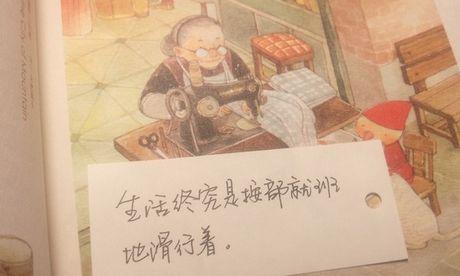 生活终究是按部就班
地滑行着。